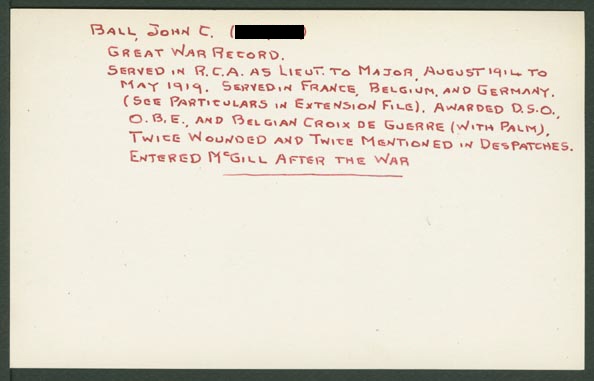 BALL, JOHN C. (
GREAT WAR RECORD.
SERVED IN R.C.A. AS LIEUT. TO MAJOR, AUGUST 1914 TO
MAY 1919. SERVED IN FRANCE, BELGIUM, AND GERMANY.
(SEE PARTICULARS IN EXTENSION FILE). AWARDED D.S.O.,
O.B.E., AND BELGIAN CROIX DE GUERRE (WITH PALM),
TWICE WOUNDED AND TWICE MENTIONED IN DESPATCHES.
ENTERED MCGILL AFTER THE WAR